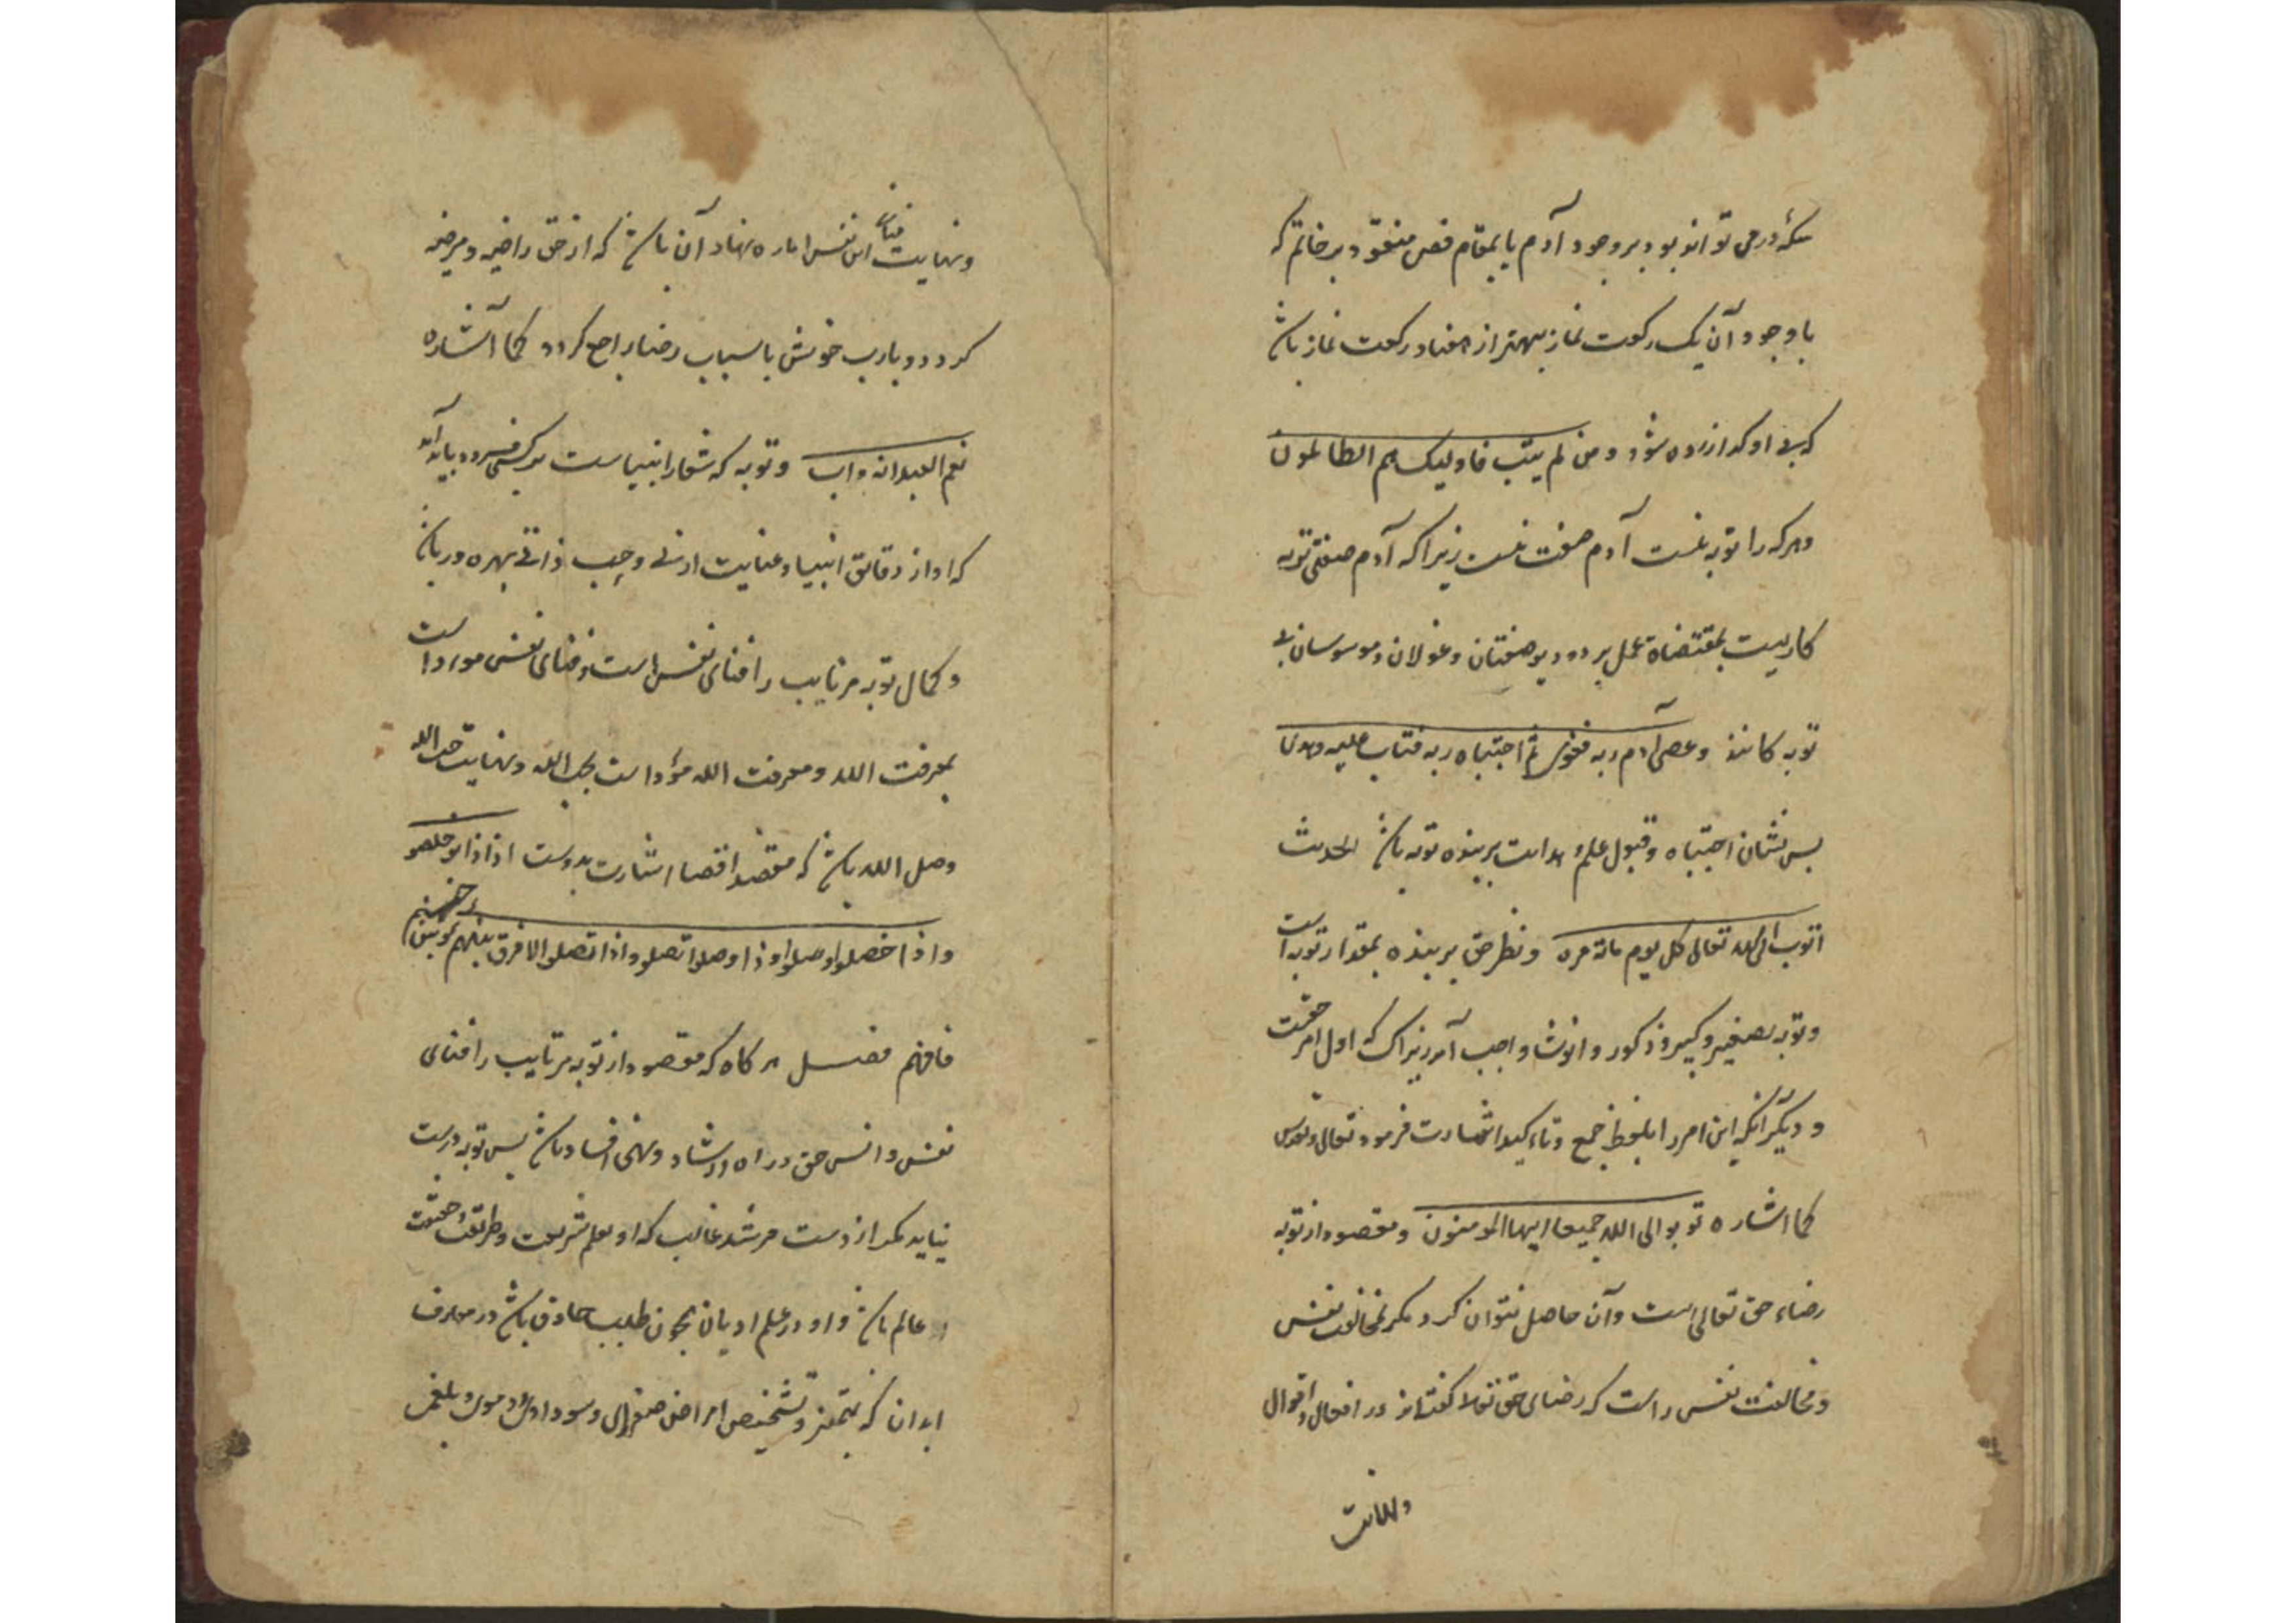 سکه در می تواند بود بر وجود آدم یا بمقام فص منعقود بر خاتم که
با وجود آن یک رکعت نماز بهتر از هفتاد رکعت نماز باشد
که بی او گذارده شود و من لم یتب فاولیک هم الظالمون
و هر که را توبه نیست آدم صفت نیست زیرا که آدم صفتی توبه
کاریست بمقتضاه عمل بر دد و دیو صفتان و غولان و موسوسان بی
توبه کانند و عصی آدم ربه فغوی ثم اجتباه ربه فتاب علیه و هدی
پس نشان اجتباه و قبول علم هدایت بر بنده توبه باشد الحدیث
اتوب الی الله تعالی کل یوم مائة مرة و نظر حق بر بنده بمقدار توبه است
و توبه بصغیر و کبیر و ذکور و انوشا واجب آمد زیراک که اول امر حقست
و دیگر آنکه این امر را بلفظ جمع و تاءکید اشارت فرمود تعالی و تقدس
کما اشاره توبوا الی الله جمیعا ایها المومنون و مقصود از توبه
رضاء حق تعالی است و آن حاصل نتوان کرد مکر بمخالفت نفس
و مخالفت نفس راست که رضای حق تعالا گفته‌اند در افعال و اقوال
و نهایت فنای این نفس اماره نهاد آن باشد که از حق راضیه و مرضیه
کردد و با رب خویش باسباب رضا راجع کردد کما اشاره
نعم العبد انه اواب و توبه که شعار انبیاست بر کسی فرود بیاید
که او از دقایق انبیا و عنایت ازلی و جذب ذاتی بهره ور باشد
و کمال توبه مر تایب را فنای نفس است و فنای نفس موءدا است
بمعرفت الله و معرفت الله مؤدا است بحب الله و نهایت حب الله
وصل الله باشد که مقصد اقصا اشارت بدوست اذا ذابوا خلصو
و اذا خصلوا وصلوا و اذا وصلوا اتصلو و اذا اتصلو الا فرق بینهم و بین
فافهم فصل هر کاه که مقصود از توبه مر تایب را فنای
نفس و انس حق در راه ارشاد و نهی افساد باشد پس توبه درست
نیاید مکر از دست مرشد غالب که او بعلم شریعت و طریقت و حقیقت
عالم باشد و او در علم ادیان همچون طبیب حاذق باشد در معارف
ابدان که بتمیز و تشخیص امراض صفراوی و سوداوی و دموی و بلغمی